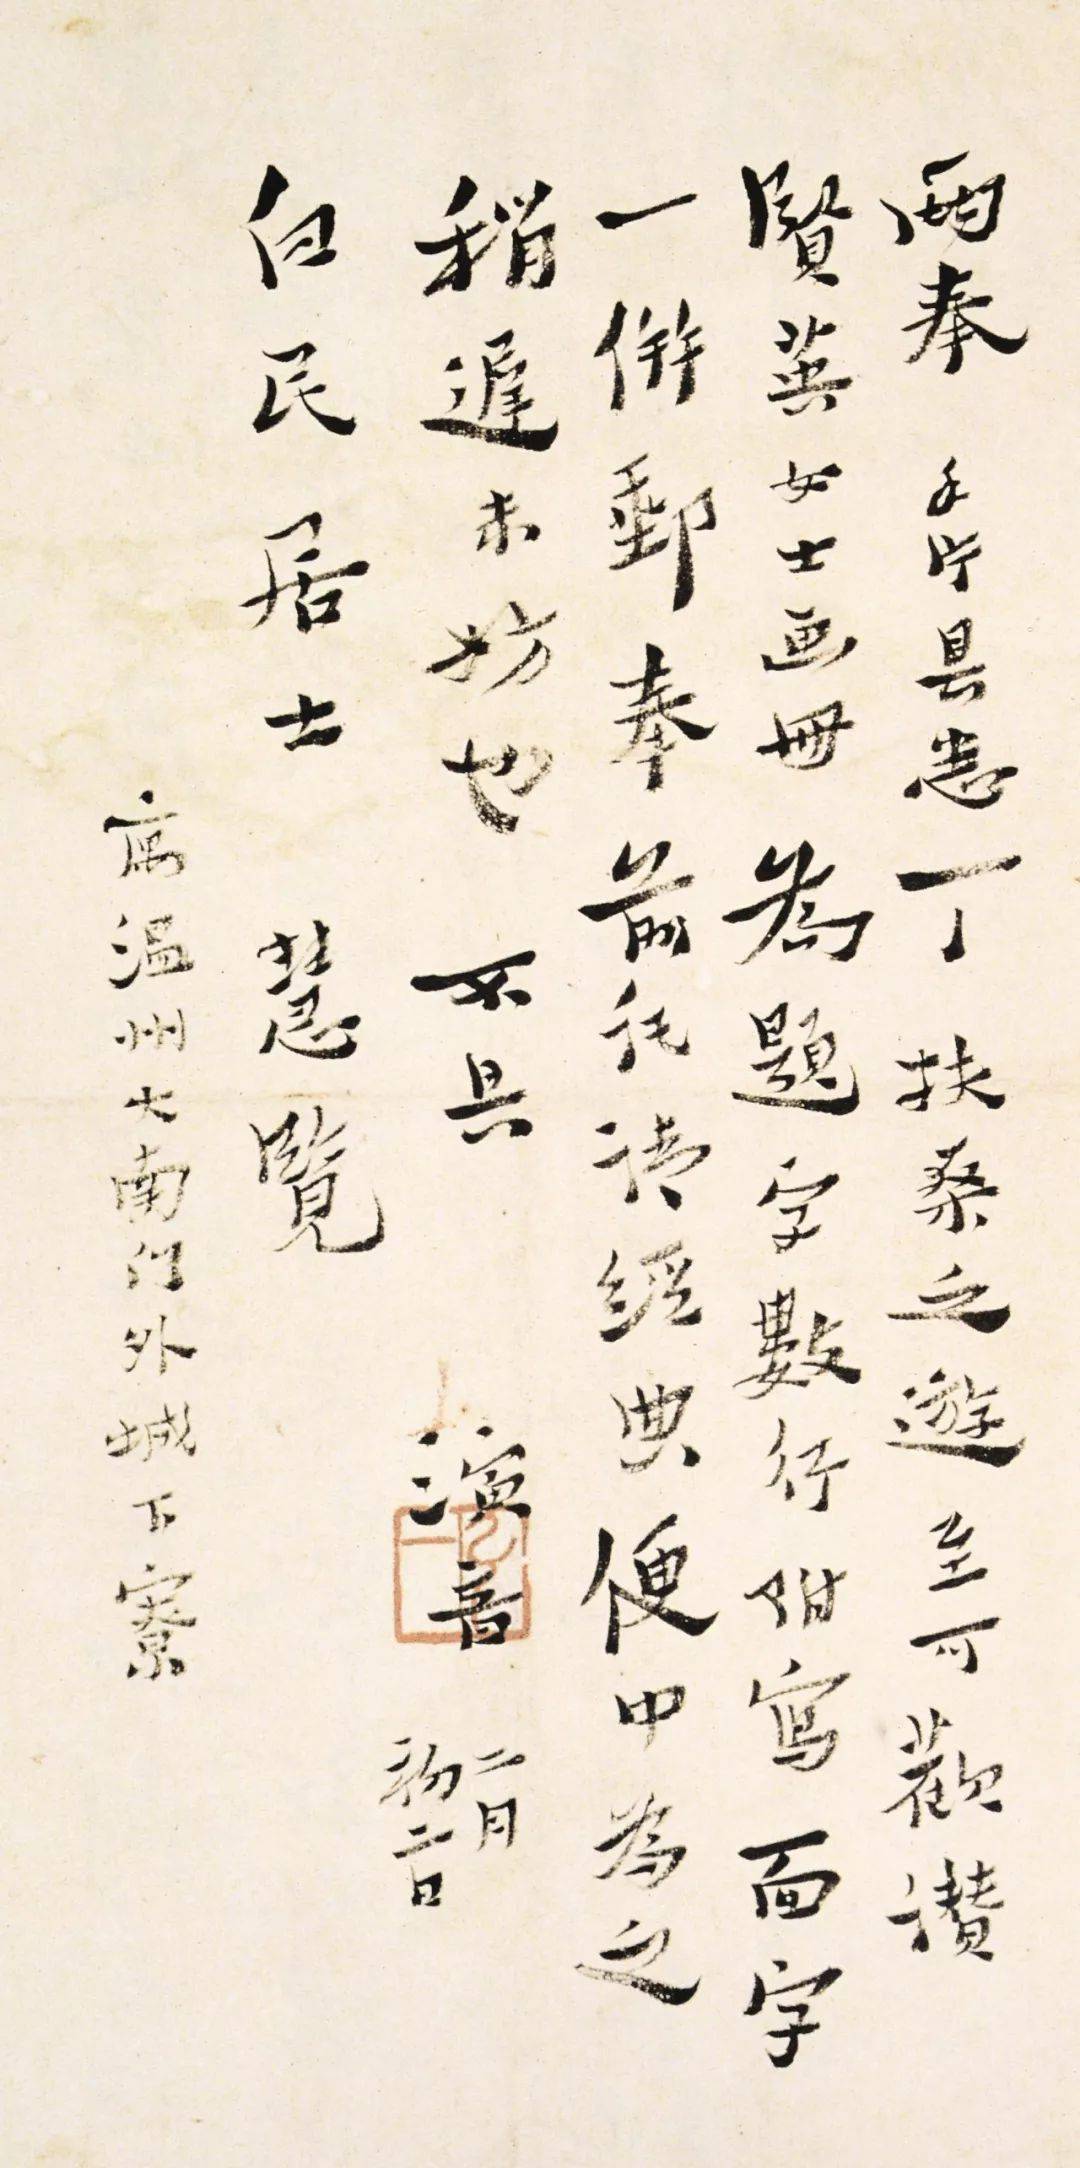 兩奉手片具悉一丁扶桑之遊至可歡讚
賢英女士画冊為題字數行附寫面字
一併郵奉前託請經典便中為之
稍遲未妨也不具演音二月初二日
白民居士慧覽
寓溫州大南门外城下寮